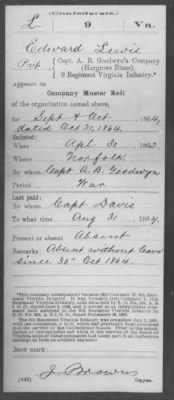 (Confederate.)
L 9 Va.
Edward Lewis
Pvt, Capt. A. B. Goodwyn's Company
(Hargrove Blues),
9 Regiment Virginia Infantry.*
appears on
Company Muster Roll
of the organization named above,
for Sept & Oct, 1864.
dated Oct 31, 1864.
Enlisted:
When Apl 30, 1862.
Where Norfolk
By whom Capt A. B. Goodwyn
Period War
Last paid:
By whom Capt Davis
To what time Aug 31, 1864.
Present or absent Absent
Remarks: Absent without leave
since 30th Oct 1864.
Book mark:
J Brown
Copyist.